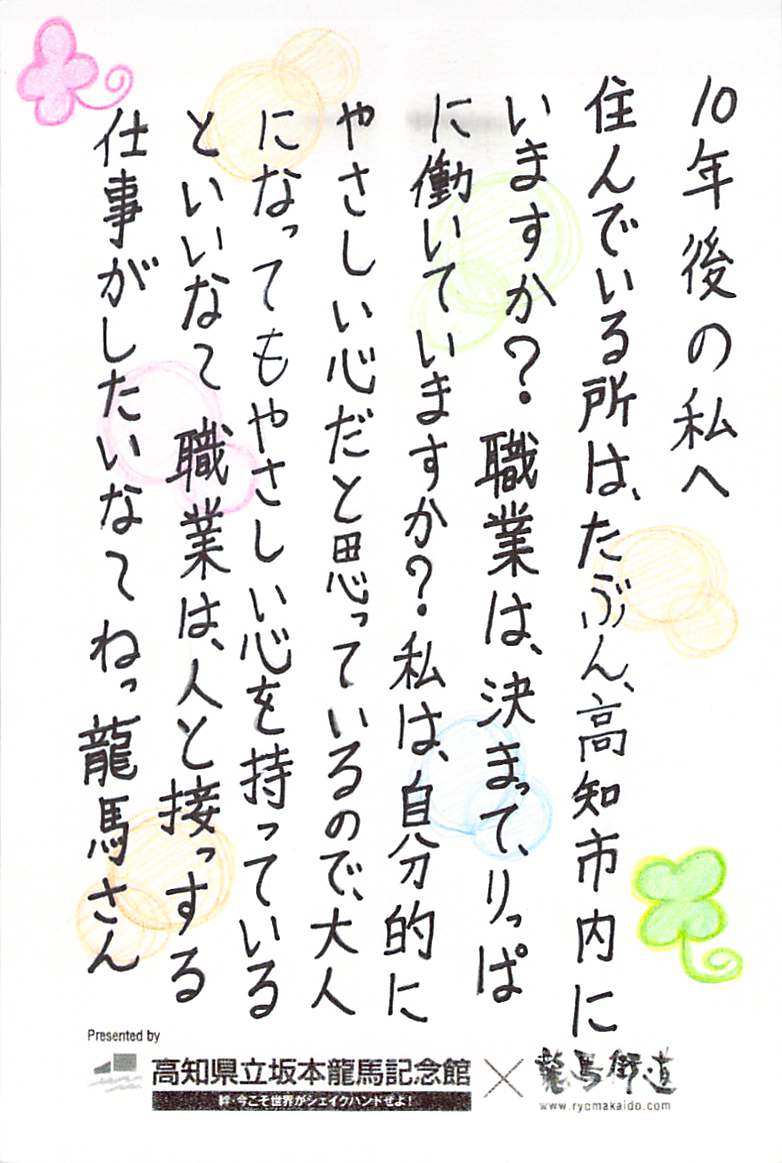 10年後の私へ
住んでいる所は、たぶん、高知市内に
いますか？職業は、決まって、りっぱ
に働いていますか？私は、自分的に
やさしい心だと思っているので、大人
になってもやさしい心を持っている
といいなて 職業は、人と接っする
仕事がしたいなてねっ龍馬さん
Presented by
高知県立坂本龍馬記念館×龍馬街道
絆・今こそ世界がシェイクハンドぜよ！
www.ryomakaido.com